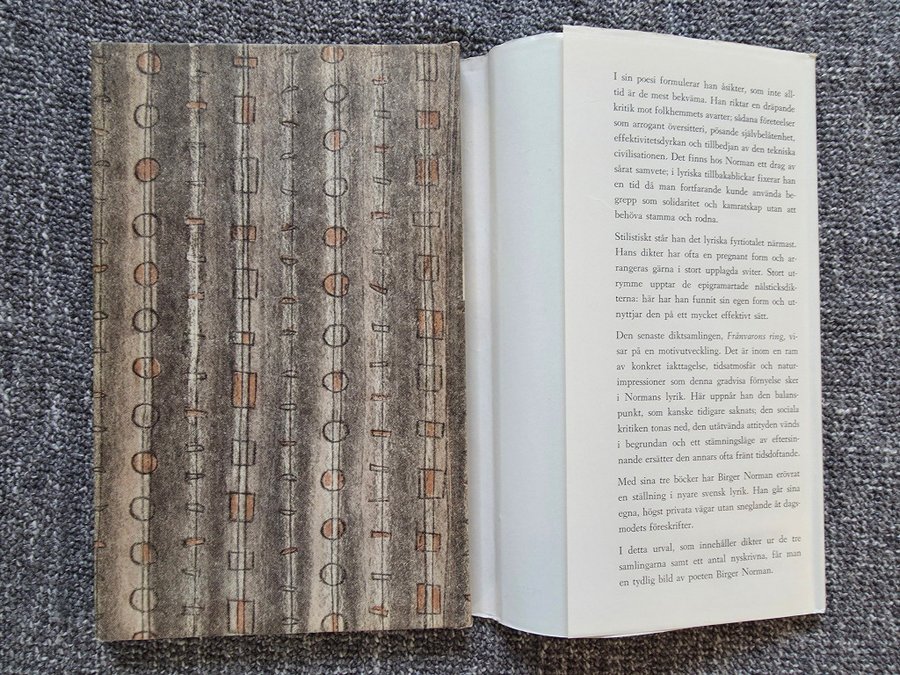 I sin poesi formulerar han åsikter, som inte all-
tid är de mest bekväma. Han riktar en dräpande
kritik mot folkhemmets avarter; sådana företeelser
som arrogant översitteri, pösande självbelåtenhet,
effektivitetsdyrkan och tillbedjan av den tekniska
civilisationen. Det finns hos Norman ett drag av
sårat samvete; i lyriska tillbakablickar fixerar han
en tid då man fortfarande kunde använda be-
grepp som solidaritet och kamratskap utan att
behöva stamma och rodna.
Stilistiskt står han det lyriska fyrtiotalet närmast.
Hans dikter har ofta en pregnant form och ar-
rangeras gärna i stort upplagda sviter. Stort ut-
rymme upptar de epigramartade nålsticksdik-
terna: här har han funnit sin egen form och ut-
nyttjar den på ett mycket effektivt sätt.
Den senaste diktsamlingen, Frånvarons ring, vi-
sar på en motivutveckling. Det är inom en ram
av konkret iakttagelse, tidsatmosfär och natur-
impressioner som denna gradvisa förnyelse sker
i Normans lyrik. Här uppnår han den balans-
punkt, som kanske tidigare saknats; den sociala
kritiken tonas ned, den utåtvända attityden vänds
i begrundan och ett stämningsläge av eftersin-
nande ersätter den annars ofta fränt tidsdoftande.
Med sina tre böcker har Birger Norman erövrat
en ställning i nyare svensk lyrik. Han går sina
egna, högst privata vägar utan sneglande åt dags-
modets föreskrifter.
I detta urval, som innehåller dikter ur de tre
samlingarna samt ett antal nyskrivna, får man
en tydlig bild av poeten Birger Norman.